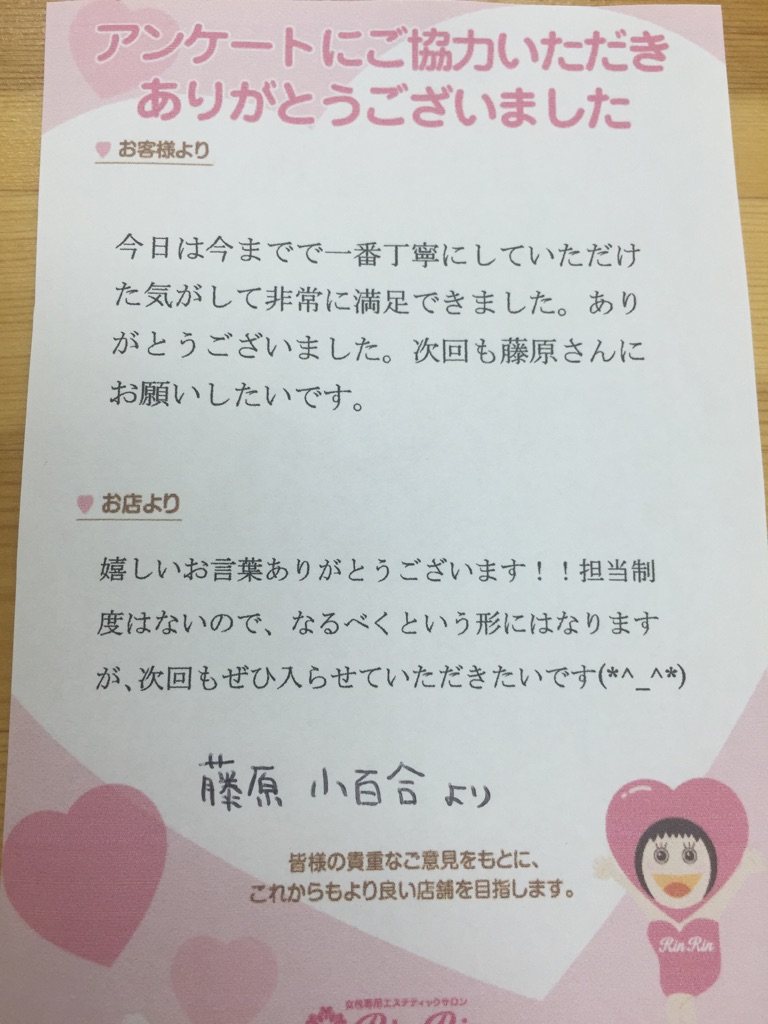 アンケートにご協力いただき
ありがとうございました
お客様より
今日は今までで一番丁寧にしていただけ
た気がして非常に満足できました。あり
がとうございました。次回も藤原さんに
お願いしたいです。
お店より
嬉しいお言葉ありがとうございます！！担当制
度はないので、なるべくという形にはなります
が、次回もぜひ入らせていただきたいです(*^_^*)
藤原 小百合 より
皆様の貴重なご意見をもとに、
これからもより良い店舗を目指します。
Rin Rin
女性専用エステティックサロン